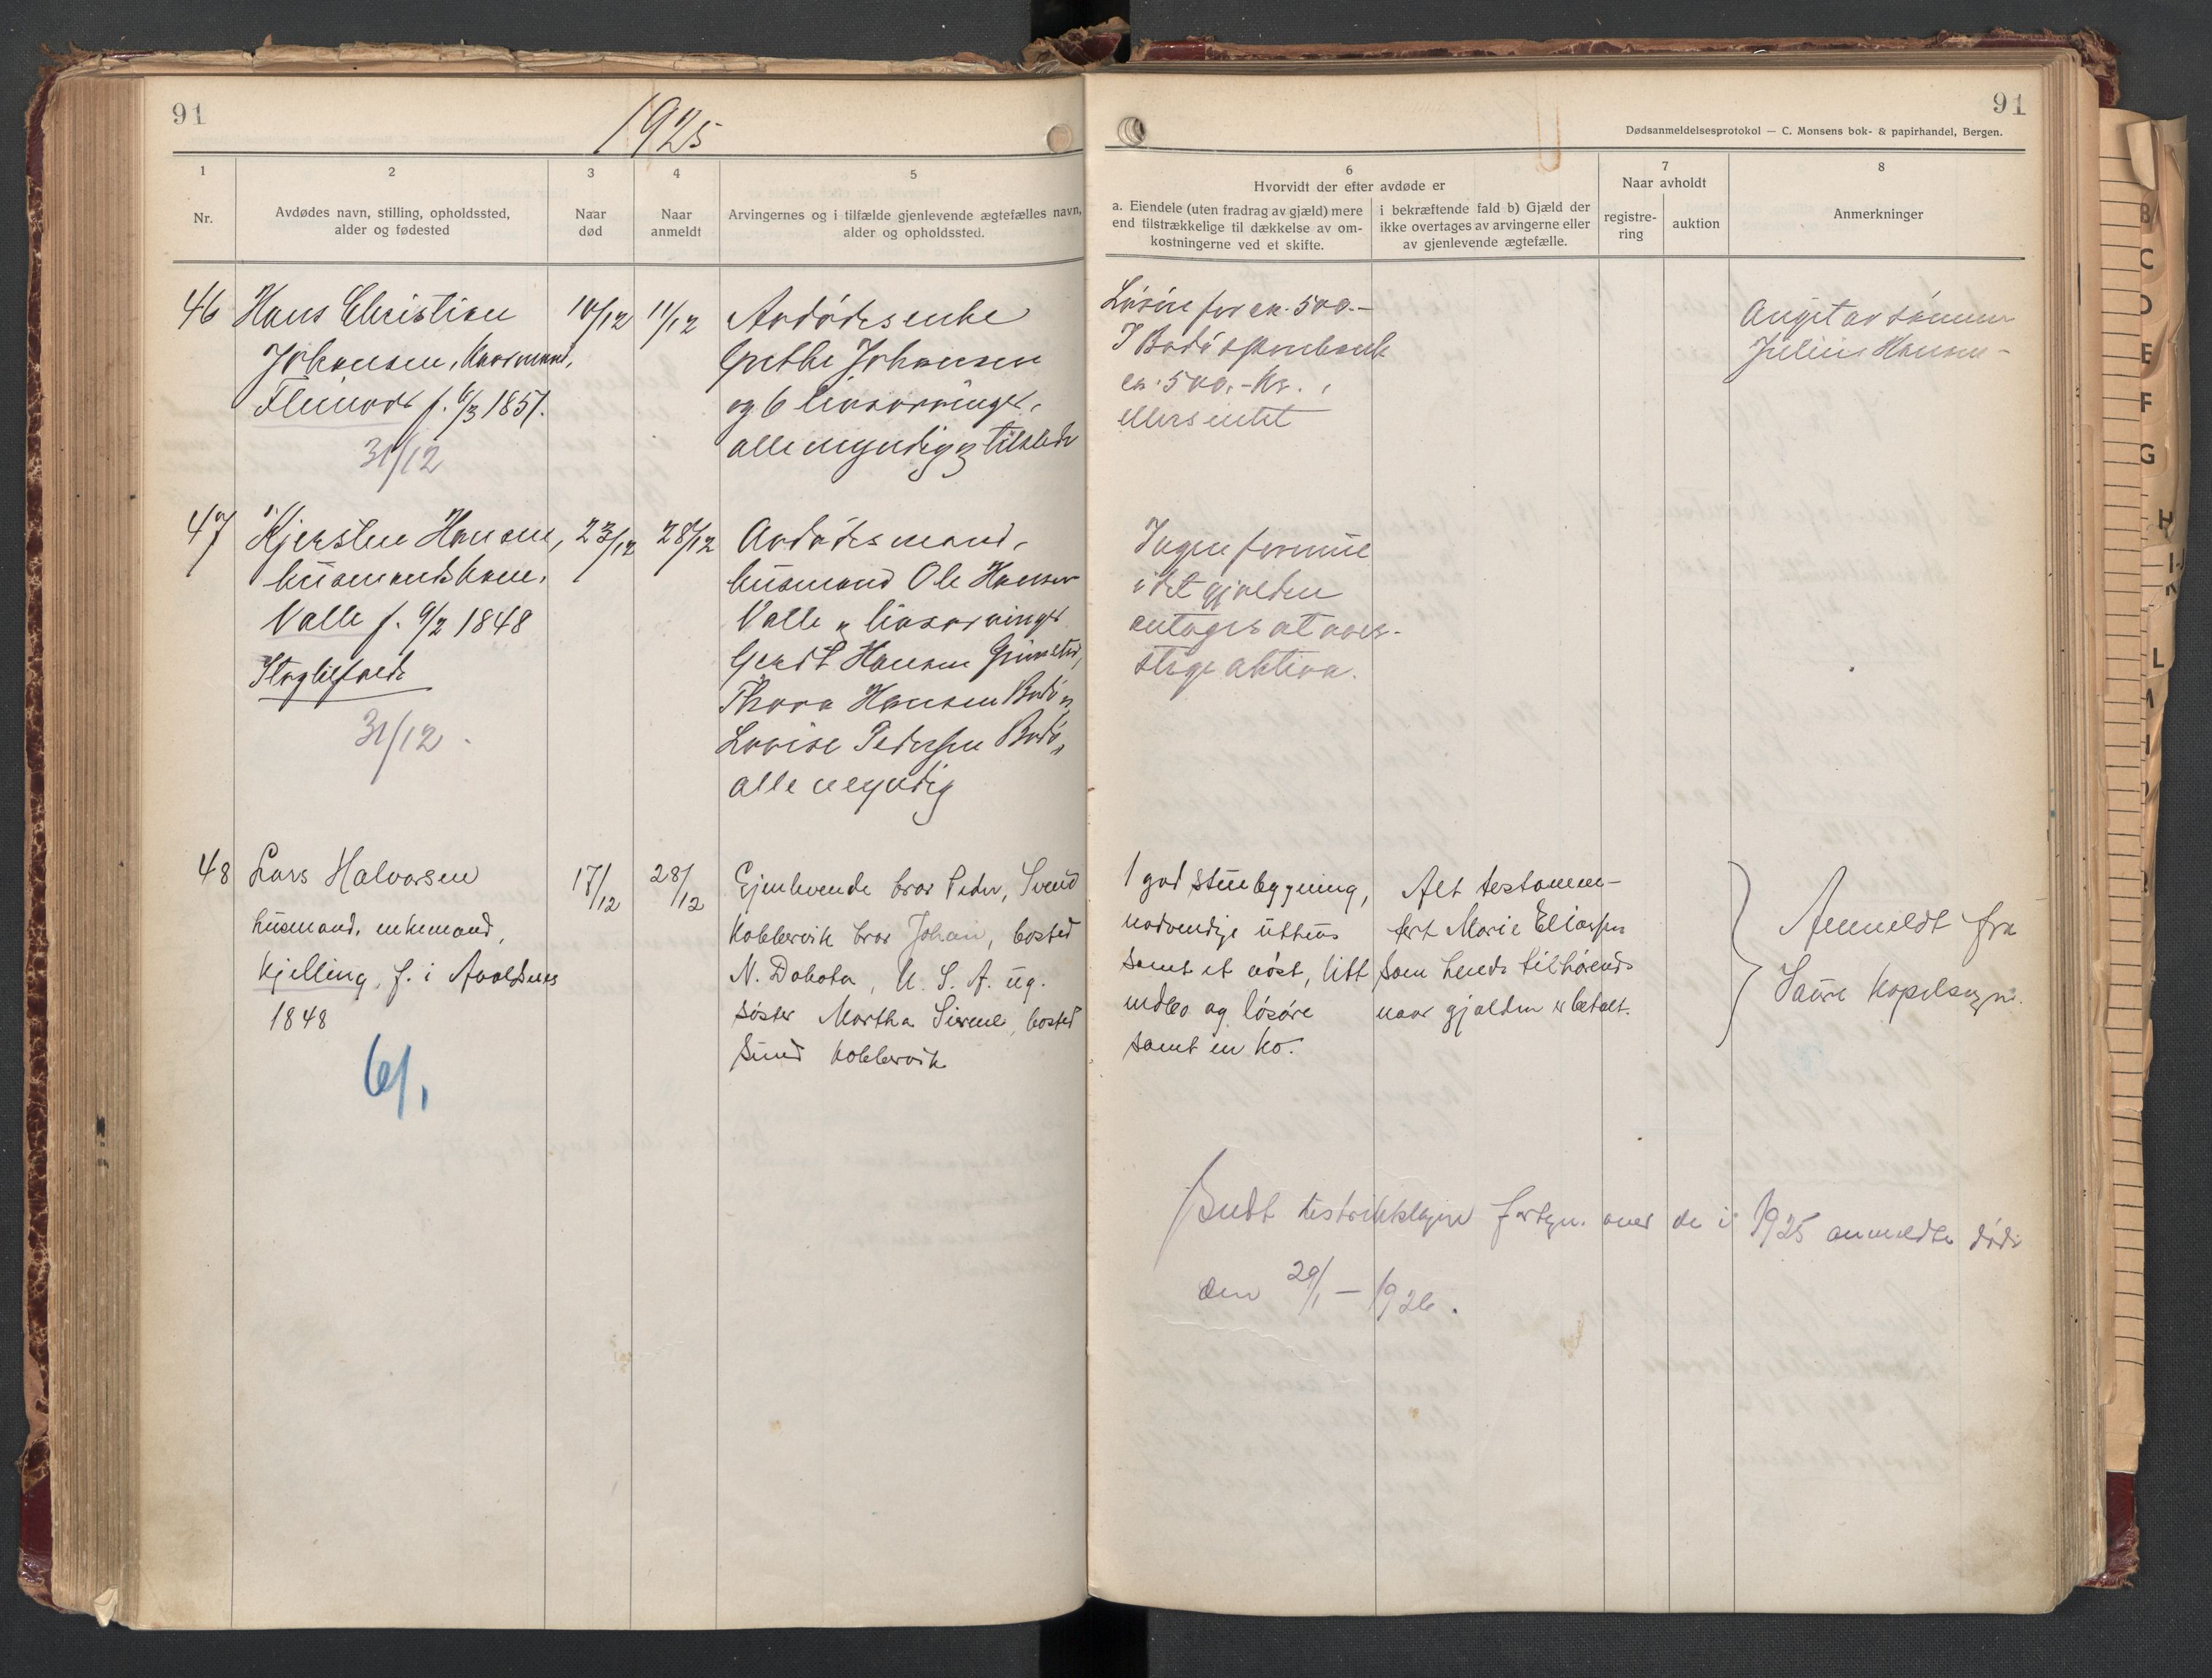 91
1925
1
2
3
4
5
Nr.
Avdødes navn, stilling, opholdssted,
alder og fødested
Naar
død
Naar
anmeldt
Arvingernes og i tilfælde gjenlevende ægtefælles navn,
alder og opholdssted.
46
Hans Christian
Johansen, kaarmand,
f. 6/3 1851.
31/12
10/12
11/12
Avdødes enke
Grethe Johansen
og 6 livsarvinger,
alle myndig og tilstede
47
Kjerstine Hansen,
husmandskone,
Valle f. 9/2 1848
31/12
23/12
28/12
Avdødes mand,
husmand Ole Hansen
Valle og livsarvinger
Gerdt Hansen
Thora Hansen Bodø og
Lovise Pedersen Bodø,
alle myndig
48
Lars Halvorsen
husmand, enkemand,
Kjelling, f. i Avaldsnes
1848
6/1
17/12
28/12
Gjenlevende bror Peder, Svend
Kobbervik bror Johan, bosted
N. Dakota, U. S. A. ug.
søster Martha Sirene, bosted
Sund Kobbervik
91
Dødsanmeldelsesprotokol — C. Monsens bok- & papirhandel, Bergen.
6
Hvorvidt der efter avdøde er
a. Eiendele (uten fradrag av gjæld) mere
end tilstrækkelige til dækkelse av om-
kostningerne ved et skifte.
i bekræftende fald b) Gjæld der
ikke overtages av arvingerne eller
av gjenlevende ægtefælle.
7
Naar avholdt
registre-
ring
auktion
8
Anmerkninger
Løsøre for ca. 500.-
I Bodø sparebank
ca. 500,- Kr.,
ellers intet
Angit av sønnen
Julius Hansen -
Ingen formue
idet gjælden
antages at over-
stige aktiva.
1 god stuebygning,
nødvendige uthus
samt et nøst, litt
indbo og løsøre
samt en ko.
Alt testamen-
tert Marie Eliassen
som hendes tilhørende
naar gjælden er betalt.
Anmeldt fra
Saura
Sendt fortegn. over de i 1925 anmeldte døde
den 29/1 - 1926.
B
C
D
E
F
G
H
I-J
K
L